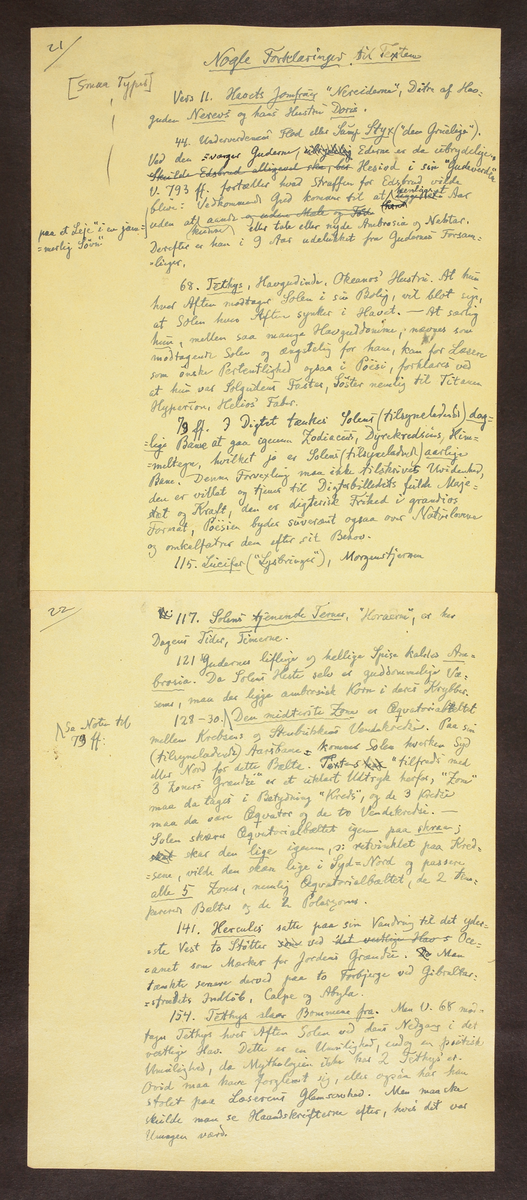 21/
Nogle Forklaringer til Texten
[Smaa Typer]
Vers 11. Havets Jomfruer "Nereiderne", Døtre af Hav-
guden Nereus og hans Hustru Doris.
44. Underverdenens Flod eller Sump Styx ("den Gruelige").
Ved den svorger Guderne, Ederne er da ubrydelige.
Skulde Edsbrud alligevel ske, Hesiod i sin "Gudeverden"
V. 793 ff. fortæller hvad Straffen for Edsbrud vilde
blive: Vedkommende Gud kommer til at Aar
paa et Leje i en jam-
=merlig Søvn
uden at aande og uden Mæle
kunne eller tale eller nyde Ambrosia og Nektar.
Derefter er han i 9 Aar udelukket fra Gudernes Forsam-
=linger.
68. Tethys, Havgudinde, Okeanos' Hustru. At hun
hver Aften modtager Solen i sin Bolig, vil blot sige,
at Solen hver Aften synker i Havet. — At særlig
hun, mellem saa mange Havguddomme, nævnes som
modtagende Solen og ængstelig for ham, kan for Læsere
som ønske Pertentlighed ogsaa i Poësi, forklares ved
at hun var Solgudens Faster, Søster nemlig til Titanen
Hyperion, Helios' Fader.
79 ff. I Digtet tænkes Solens (tilsyneladende) dag-
=lige Bane at gaa igennem Zodiacus, Dyrekredsens, Him-
=meltegn, hvilket jo er Solens (tilsyneladende) aarlige
Bane. Denne Forvexling maa ikke tilskrives Uvidenhed,
den er villet og tjener til Digterbilledets fulde Maje-
stæt og Kraft, den er digterisk Frihed i grandios
Format, Poësien byder suverænt ogsaa over Naturlovene
og omkalfatrer den efter sit Behov.
115. Lucifer ("Lysbringer"), Morgenstjernen
22/
117. Solens tjenende Terner, "Horaerne", er her
Dagens Tider, Timerne.
121 Gudernes liflige og hellige Spise kaldes Am-
brosia. Da Solens Heste selv er guddommelige Væ-
sener, maa der ligge ambrosisk Korn i deres Krybber.
Se Noten til
79 ff.
128-30. Den midterste Zone er Æqvatorialbæltet
mellem Krebsens og Stenbukkens Vendekredse. Paa sin
(tilsyneladende) Aarsbane kommer Solen hverken Syd
eller Nord for dette Bælte. Textens "tilfreds med
3 Zoners Grændse" er et uklart Udtryk herfor, "Zone"
maa da tages i Betydning "Kreds", og de 3 Kredse
maa da være Æqvator og de to Vendekredse. —
Solen skærer Æqvatorialbæltet igennem paa skraa;
skar den lige igennem, ɔ: retvinklet paa Kred-
=sene, vilde den skære lige i Syd=Nord og passere
alle 5 Zoner, nemlig Æqvatorialbæltet, de 2 Tem-
pererede Bælter og de 2 Polarzoner.
141. Hercules satte paa sin Vandring til det yder-
=ste Vest to Støtter ved det vestlige Hav Oce-
=anet som Mærker for Jordens Grændse. Man
tænkte senere derved paa to Forbjerge ved Gibraltar-
=strædets Indløb, Calpe og Abyla.
154. Tethys slaar Bommene fra. Men V. 68 mod-
tager Tethys hver Aften Solen ved dens Nedgang i det
vestlige Hav. Dette er en Umulighed, endog en poëtisk
Umulighed, da Mythologien ikke har 2 Tethys'er.
Ovid maa have forglemt sig, eller ogsaa har han
stolet paa Læserens Glemsomhed. Men man
skulde man se Haandskrifterne efter, hvis det var
Umagen værd.